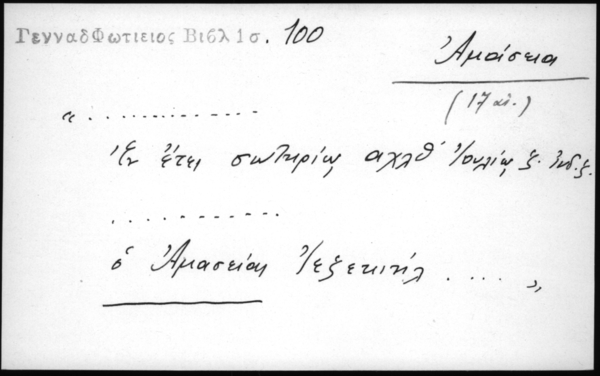 ΓενναδΦωτιειος Βιβλ 1σ. 100
Ἀμάσεια
(17 αἰ.)
« . . . . . . . . . . . . . . . .
Ἐν ἔτει σωτηρίῳ αχλθ΄ Ἰουλίῳ ξ. Ἰνδ. ξ.
. . . . . . . . . . . . .
ὁ Ἀμασείας Ἰεζεκιήλ . . . . »